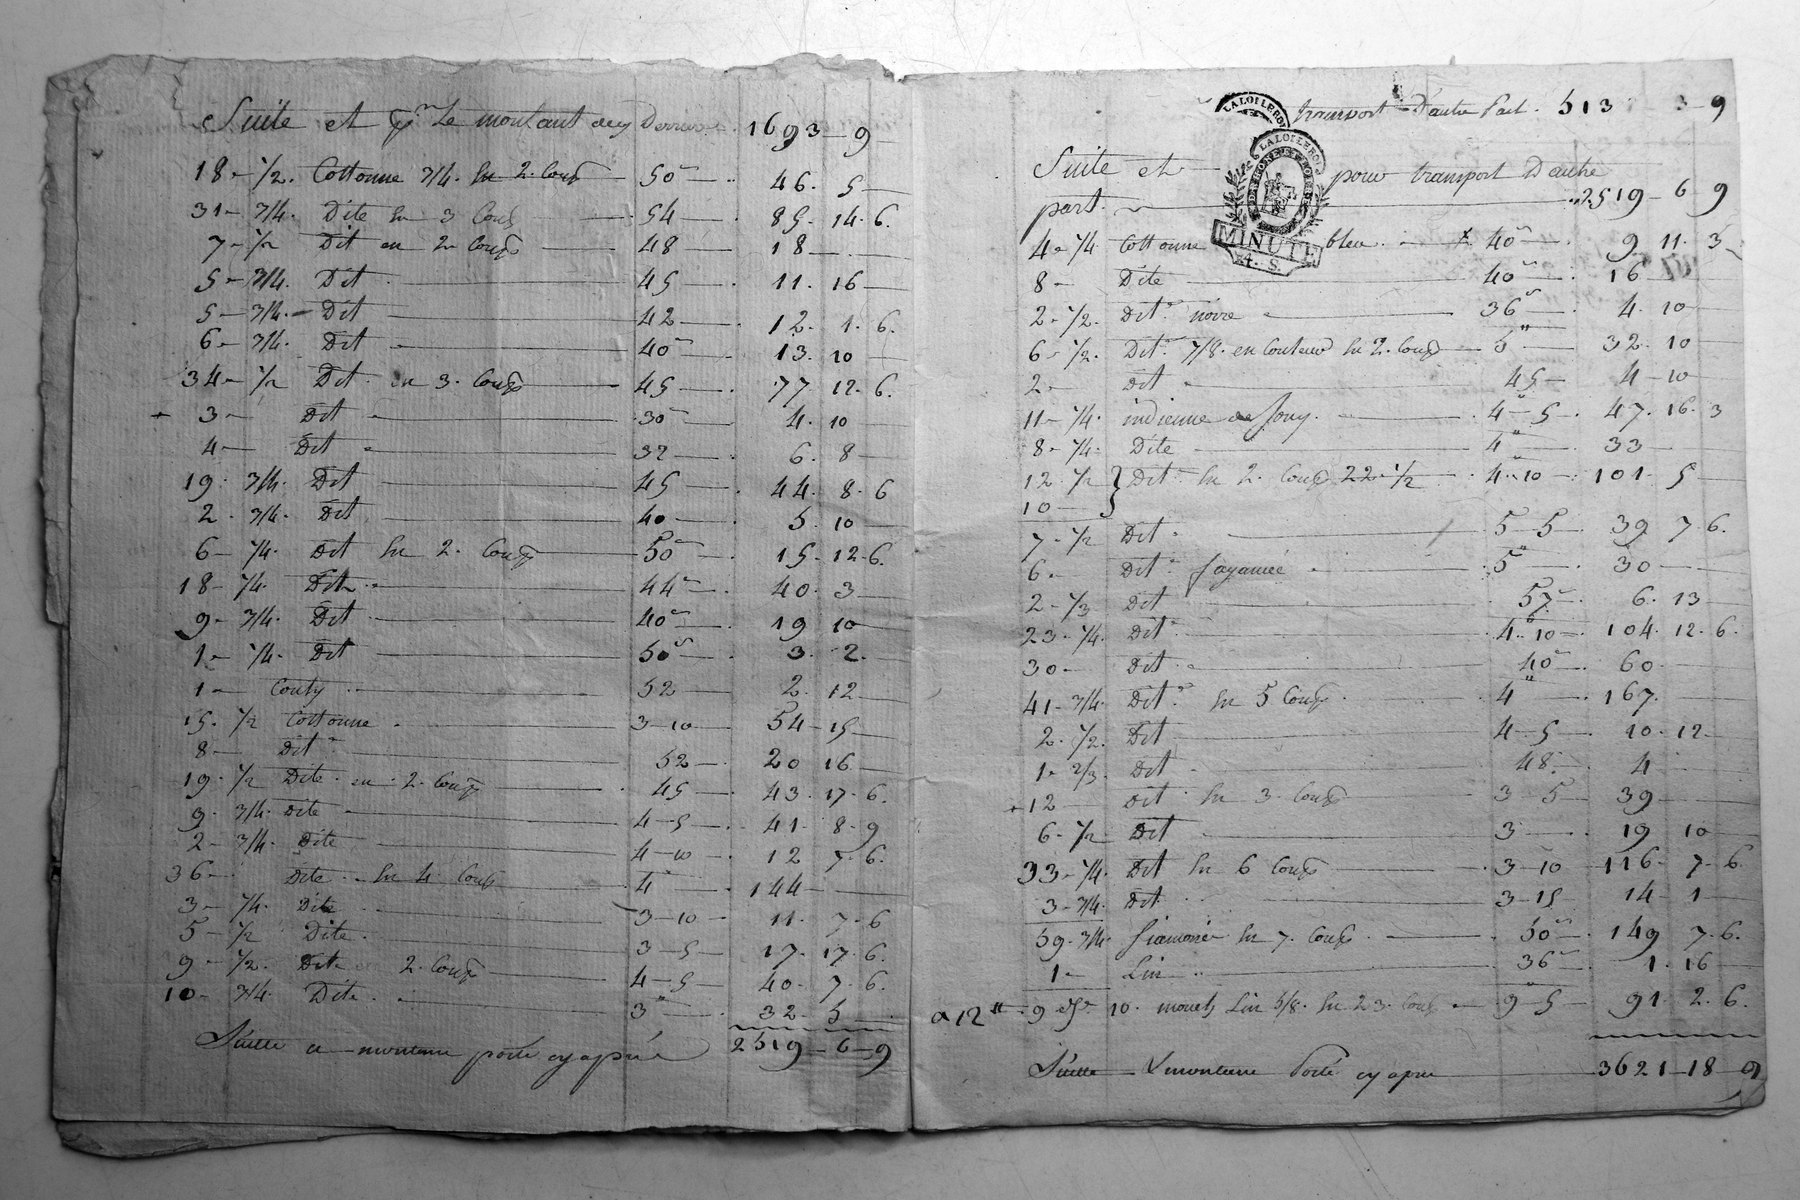 Suite et pr Le montant des Derrieres 1693 - 9
18 - 1/2. Cottonne 3/4. En 2. Coup 50 46. 5
31 - 3/4. Dite En 3 Coup 54 85. 14. 6.
7 - 1/2 Dit en 2 Coup 48 18
5 - 3/4. Dit 45 11. 16
5 - 3/4. Dit 42 12. 1. 6.
6 - 3/4. Dit 40 13. 10
34 - 1/2 Dit en 3. Coup 45 77 12. 6.
3 - Dit 30 4. 10
4 - Dit 32 6. 8
19. 3/4. Dit 45 44. 8. 6
2. 3/4. Dit 40 5. 10
6 - 1/4. Dit En 2. Coup 50 15. 12. 6.
18 - 1/4. Dite 44 40. 3
9 - 3/4. Dit 40 19 10
1 - 1/4. Dit 50 3. 2.
1 - Couty 52 2. 12
15. 1/2 Cottonne 3 - 10 54 - 15
8 - Dit 52 20 16
19. 1/2 Dite en 2. Coup 45 43. 17. 6.
9. 3/4. Dite 4 - 5 41. 8. 9
2 - 3/4. Dite 4 - 10 12 7. 6.
36 - Dite En 4 Coup 4 144
3 - 1/4. Dite 3 - 10 11. 7. 6
5 - 1/2 Dite 3 - 5 17. 17. 6.
9 - 1/2. Dite 2. Coup 4 - 5 40. 7. 6.
10 - 3/4. Dite 3 32. 5
Suitte a montenu porté cy après 2519 - 6 - 9
transport D'autre Part. 513 3 - 9
LA LOI LE ROI
Suite et pour transport D'autre
part. 2519 - 6 9
LA LOI LE ROI
MINUTE
4. S.
4 - 1/4 Cottonne bleu 40 9 11. 3
8 - Dite 40 16
2 - 1/2. Dit noire 36 4. 10
6 - 1/2. Dit 7/8. en Couleur En 2. Coup 5 32. 10
2 - Dit 45 4 - 10
11 - 1/4. indienne de Jouy 4 - 5 47. 16. 3
8 - 1/4. Dite 4 33
12 1/2 } Dit En 2. Coup 22 - 1/2 4 - 10 101. 5
10
7 - 1/2 Dit 5 - 5 39. 7 - 6.
6 - Dit 5 30
2 - 1/3 Dit 57 6. 13
23 - 1/4. Dit 4 - 10 104. 12. 6.
30 - Dit 40 60
41 - 3/4. Dit En 5 Coup 4 167.
2. 1/2. Dit 4 - 5 10. 12
1 - 2/3. Dit 48 4
12 Dit En 3 Coup 3 - 5 39
6 - 1/2 Dit 3 19 10
33 - 1/4. Dit En 6 Coup 3 - 10 116. 7. 6
3 - 3/4. Dit 3 - 15 14 1
59 - 3/4. Siamoise En 7. Coup 50 149 7. 6.
1 - Lin 36 1. 16
a 12 - 9 10. mouch Lin 5/8. En 23 Coup 9 - 5 91. 2. 6.
Suitte Le montenu Porté cy apres 3621 - 18 - 9